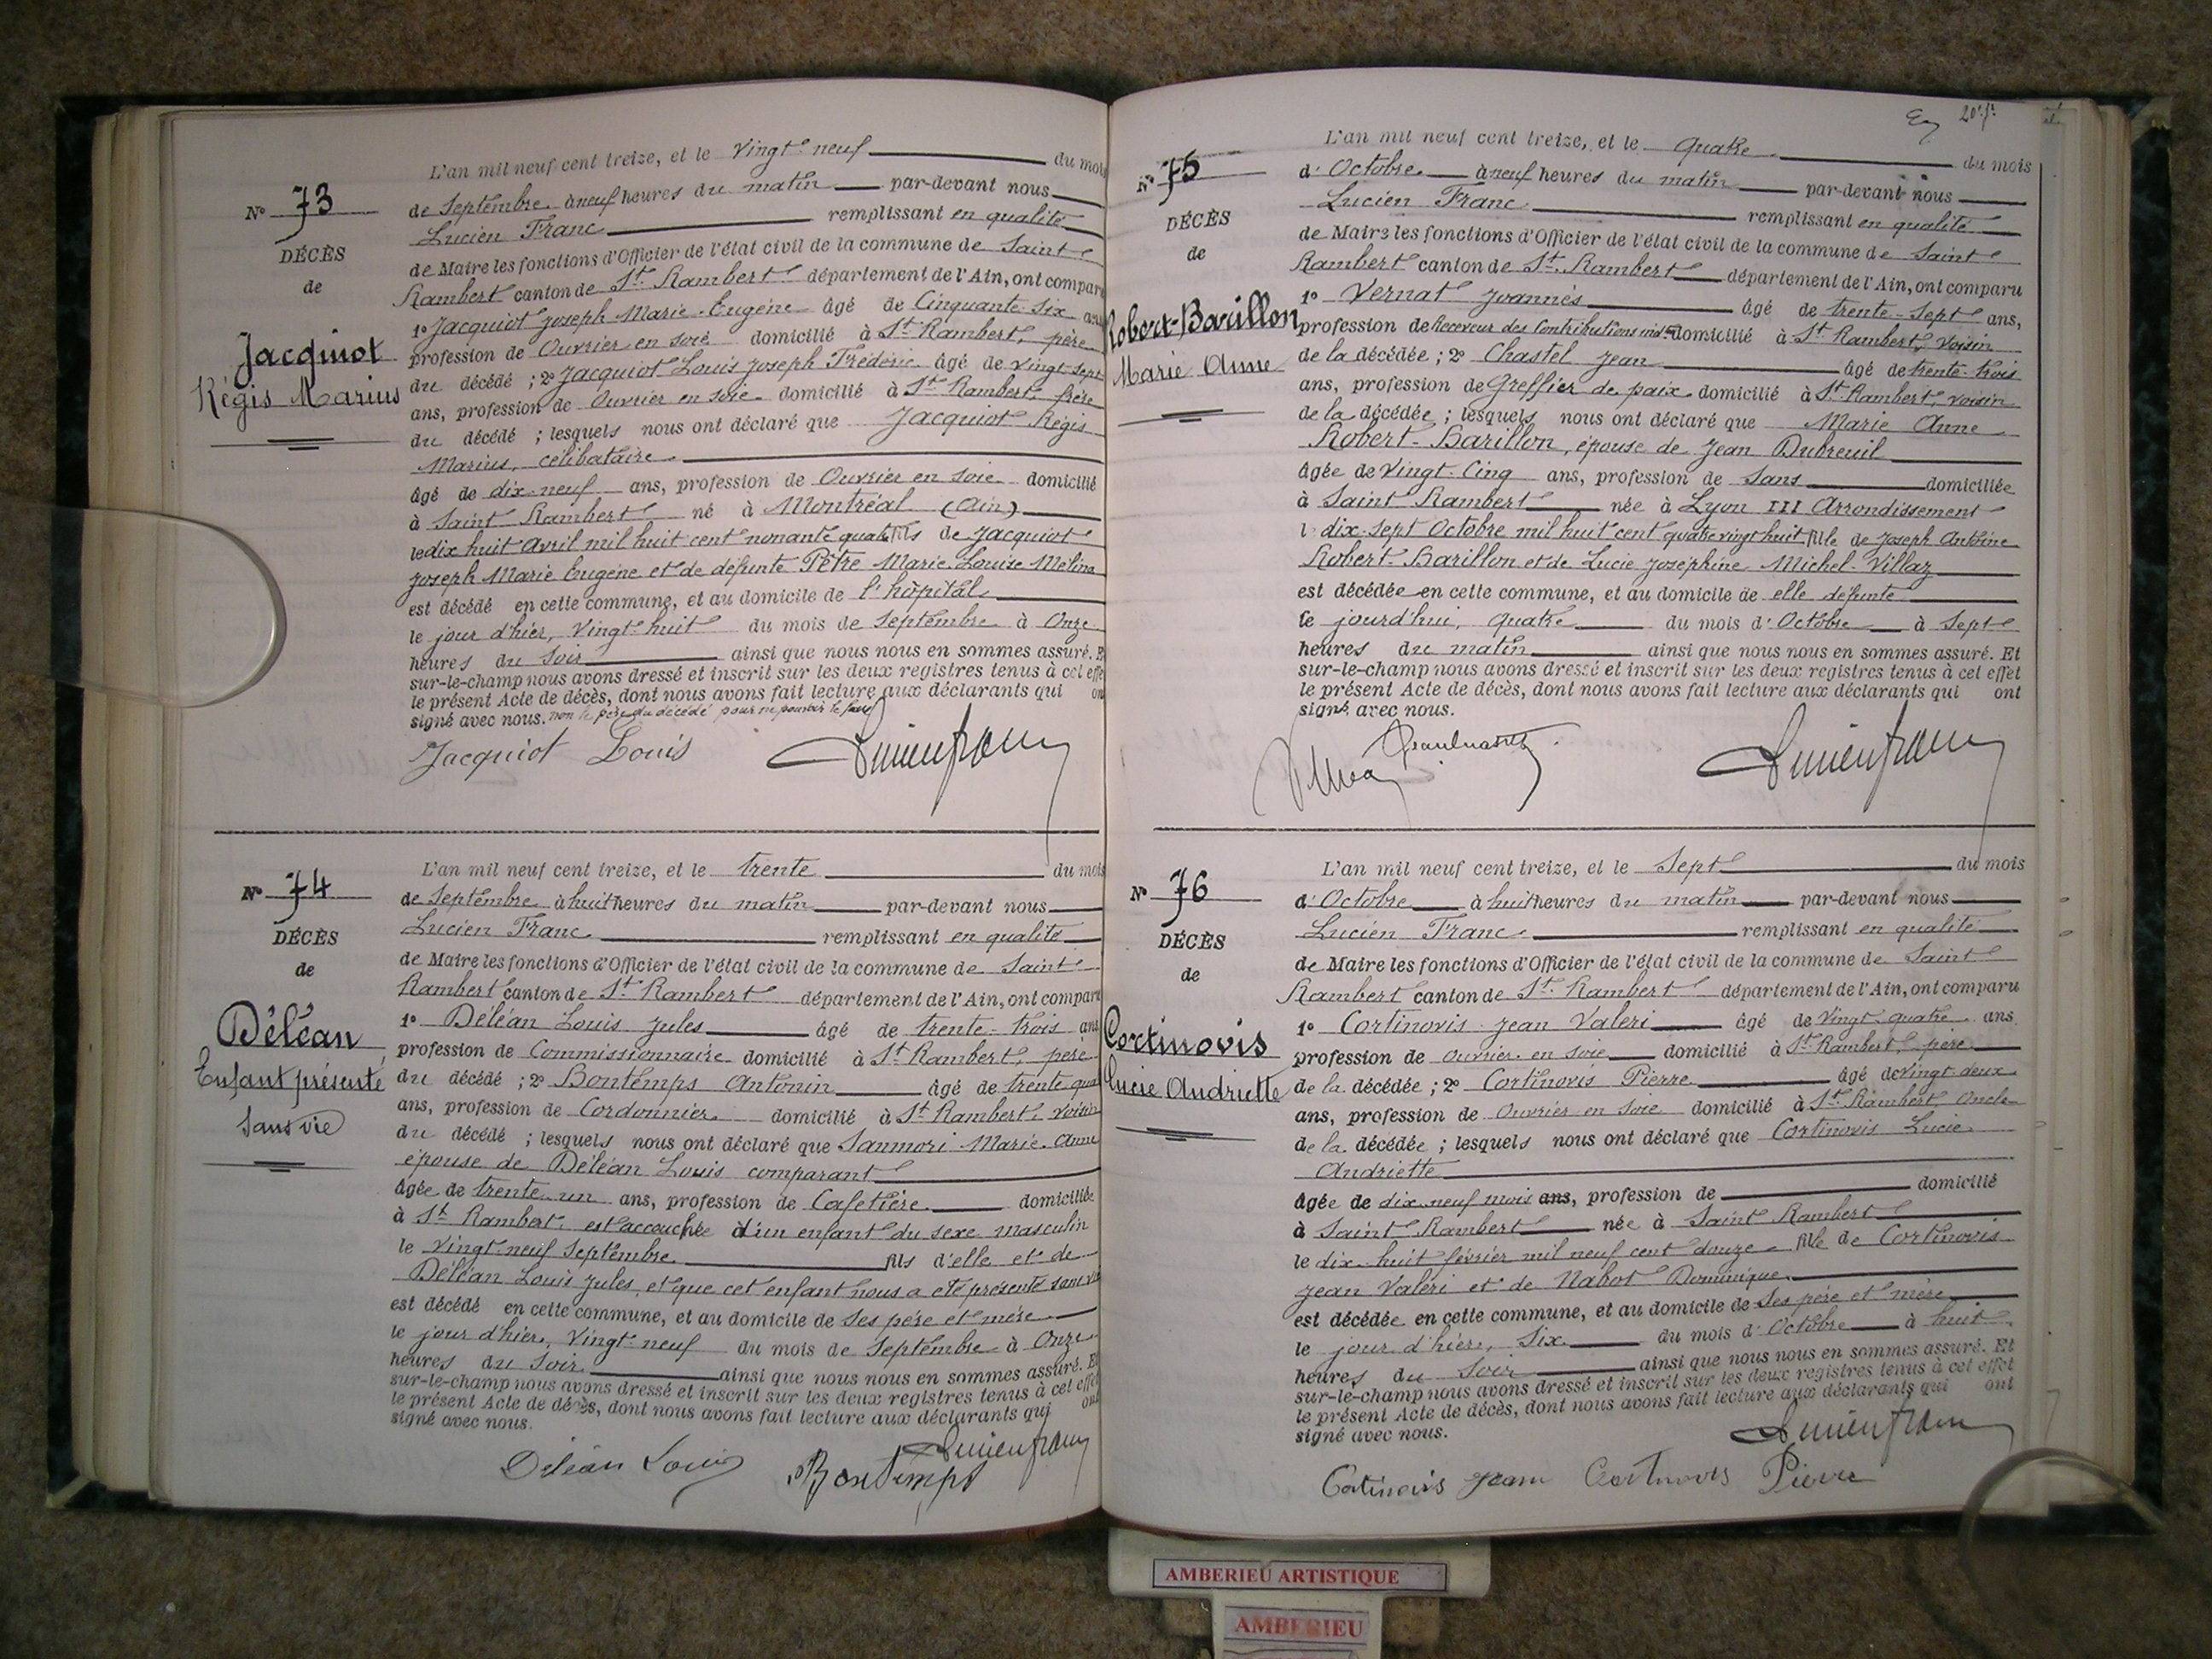 L'an mil neuf cent treize, et le Vingt neuf du mois
N° 73
de Septembre à neuf heures du matin par-devant nous
Lucien Franc remplissant en qualité
DÉCÈS
de
Jacquiot
Régis Marius
de Maire les fonctions d'Officier de l'état civil de la commune de Saint
Rambert canton de St. Rambert département de l'Ain, ont comparu
1° Jacquiot Joseph Marie Eugène âgé de Cinquante-six ans
profession de Ouvrier en soie domicilié à St. Rambert, père
du décédé ; 2° Jacquiot Louis Joseph Frédéric âgé de vingt sept
ans, profession de Ouvrier en soie domicilié à St. Rambert, frère
du décédé ; lesquels nous ont déclaré que Jacquiot Régis
Marius, célibataire
âgé de dix-neuf ans, profession de Ouvrier en soie domicilié
à Saint Rambert né à Montréal (Ain)
le dix huit avril mil huit cent nonante quatre fils de Jacquiot
Joseph Marie Eugène et de défunte Pêtre Marie Louise Mélina
est décédé en cette commune, et au domicile de l'hôpital
le jour d'hier, Vingt-huit du mois de Septembre à Onze
heures du soir ainsi que nous nous en sommes assuré. E
sur-le-champ nous avons dressé et inscrit sur les deux registres tenus à cet effe
le présent Acte de décès, dont nous avons fait lecture aux déclarants qui on
signé avec nous. non le père du décédé pour ne pouvoir le faire
Jacquiot Louis Lucien franc
L'an mil neuf cent treize, et le trente du mois
N° 74
de Septembre à huit heures du matin par-devant nous
Lucien Franc remplissant en qualité
DÉCÈS
de
Déléan
Enfant présenté
Sans vie
de Maire les fonctions d'Officier de l'état civil de la commune de Saint
Rambert canton de St. Rambert département de l'Ain, ont comparu
1° Déléan Louis Jules âgé de trente-trois ans
profession de Commissionnaire domicilié à St. Rambert, père
du décédé ; 2° Bontemps Antonin âgé de trente qua
ans, profession de Cordonnier domicilié à St. Rambert, voisin
du décédé ; lesquels nous ont déclaré que Sanmori Marie-Anne
épouse de Déléan Louis comparant
âgée de trente-un ans, profession de Cafetière domiciliée
à St. Rambert est accouchée d'un enfant du sexe masculin
le Vingt-neuf Septembre fils d'elle et de
Déléan Louis Jules, et que cet enfant nous a été présenté sans vie
est décédé en cette commune, et au domicile de ses père et mère
le jour d'hier, Vingt-neuf du mois de Septembre à Onze
heures du soir ainsi que nous nous en sommes assuré. Et
sur-le-champ nous avons dressé et inscrit sur les deux registres tenus à cet effet
le présent Acte de décès, dont nous avons fait lecture aux déclarants qui ont
signé avec nous.
Lucien franc
Déléan Louis Bontemps
20 f.t
L'an mil neuf cent treize, et le quatre du mois
N° 75
d'Octobre à neuf heures du matin par-devant nous
Lucien Franc remplissant en qualité
DÉCÈS
de
Robert-Barillon
Marie Anne
de Maire les fonctions d'Officier de l'état civil de la commune de Saint
Rambert canton de St. Rambert département de l'Ain, ont comparu
1° Vernat Joannès âgé de trente-sept ans,
profession de Receveur des Contributions ind.tes domicilié à St. Rambert, voisin
de la décédée ; 2° Chastel Jean âgé de trente-trois
ans, profession de Greffier de paix domicilié à St. Rambert, voisin
de la décédée ; lesquels nous ont déclaré que Marie Anne
Robert-Barillon, épouse de Jean Dubreuil
âgée de vingt-cinq ans, profession de sans domiciliée
à Saint Rambert née à Lyon III Arrondissement
le dix-sept Octobre mil huit cent quatre vingt huit fille de Joseph Antoine
Robert-Barillon et de Lucie Joséphine Michel-Villaz
est décédée en cette commune, et au domicile de elle défunte
le jourd'hui, quatre du mois d'Octobre à Sept
heures du matin ainsi que nous nous en sommes assuré. Et
sur-le-champ nous avons dressé et inscrit sur les deux registres tenus à cet effet
le présent Acte de décès, dont nous avons fait lecture aux déclarants qui ont
signé avec nous.
Lucien franc
L'an mil neuf cent treize, et le Sept du mois
N° 76
d'Octobre à huit heures du matin par-devant nous
Lucien Franc remplissant en qualité
DÉCÈS
de
Cortinovis
Lucie Andriette
de Maire les fonctions d'Officier de l'état civil de la commune de Saint
Rambert canton de St. Rambert département de l'Ain, ont comparu
1° Cortinovis Jean Valéri âgé de Vingt quatre ans
profession de Ouvrier en soie domicilié à St. Rambert, père
de la décédée ; 2° Cortinovis Pierre âgé de vingt-deux
ans, profession de Ouvrier en soie domicilié à St. Rambert, Oncle
de la décédée ; lesquels nous ont déclaré que Cortinovis Lucie
Andriette
âgée de dix-neuf mois ans, profession de domicilié
à Saint Rambert née à Saint Rambert
le dix huit février mil neuf cent douze fille de Cortinovis
Jean Valéri et de Nabot Dominique
est décédée en cette commune, et au domicile de ses père et mère
le jour d'hier, Six du mois d'Octobre à huit
heures du soir ainsi que nous nous en sommes assuré. Et
sur-le-champ nous avons dressé et inscrit sur les deux registres tenus à cet effet
le présent Acte de décès, dont nous avons fait lecture aux déclarants qui ont
signé avec nous.
Lucien franc
Cortinovis Jean Cortinovis Pierre
AMBERIEU ARTISTIQUE
AMBERIEU